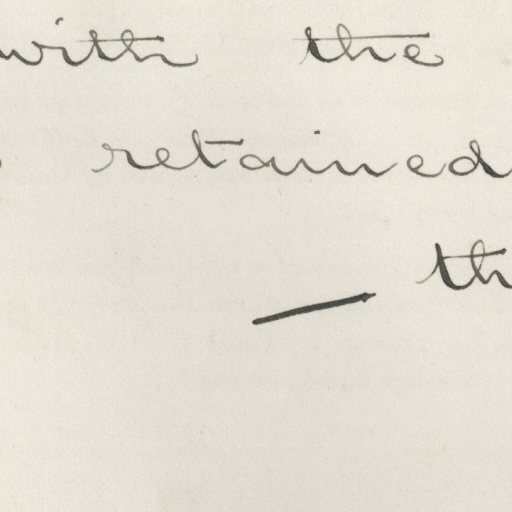 with the
retained
— th